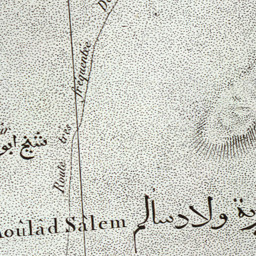 Route très fréquentée
شيخ ابو
oûlâd Sâlem
ولاد سالم